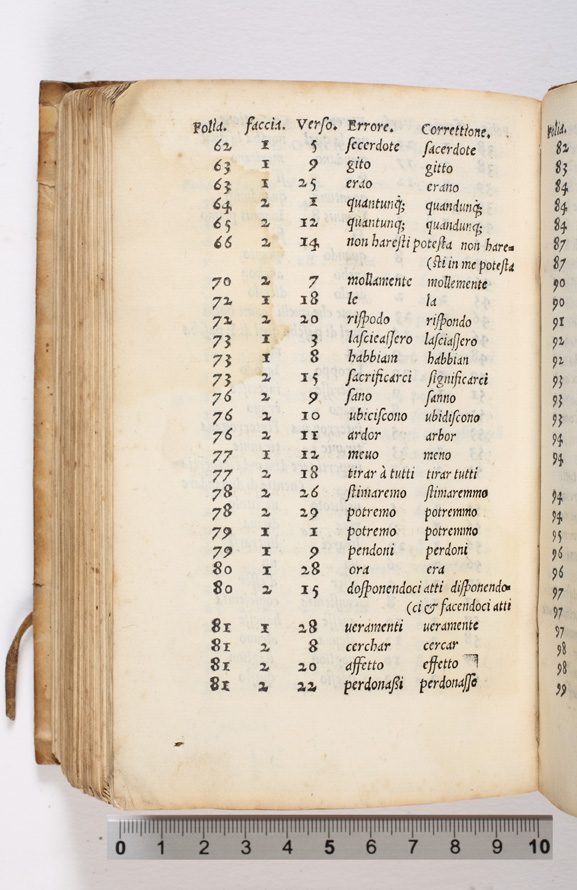 Folia. faccia. Verso. Errore. Correttione.
62 1 5 secerdote sacerdote
63 1 9 gito gitto
63 1 25 erao erano
64 2 1 quantunq; quandunq;
65 2 12 quantunq; quandunq;
66 2 14 non haresti potesta non hare=
(sti in me potesta
70 2 7 mollamente mollemente
72 1 18 le la
72 2 20 rispodo rispondo
73 1 3 lascieassero lasciassero
73 1 8 habbiam habbian
73 2 15 sacrificarci significarci
76 2 9 sano sanno
76 2 10 ubiciscono ubidiscono
76 2 11 ardor arbor
77 1 12 meuo meno
77 2 18 tirar à tutti tirar tutti
78 2 26 stimaremo stimaremmo
78 2 29 potremo potremmo
79 1 1 potremo potremmo
79 1 9 pendoni perdoni
80 1 28 ora era
80 2 15 dosponendoci atti disponendo=
(ci & facendoci atti
81 1 28 ueramenti ueramente
81 2 8 cerchar cercar
81 2 20 affetto effetto
81 2 22 perdonaßi perdonasse
82
83
84
84
84
87
87
90
90
91
92
92
93
93
93
94
94
94
94
95
96
96
97
97
97
98
98
99
0 1 2 3 4 5 6 7 8 9 10